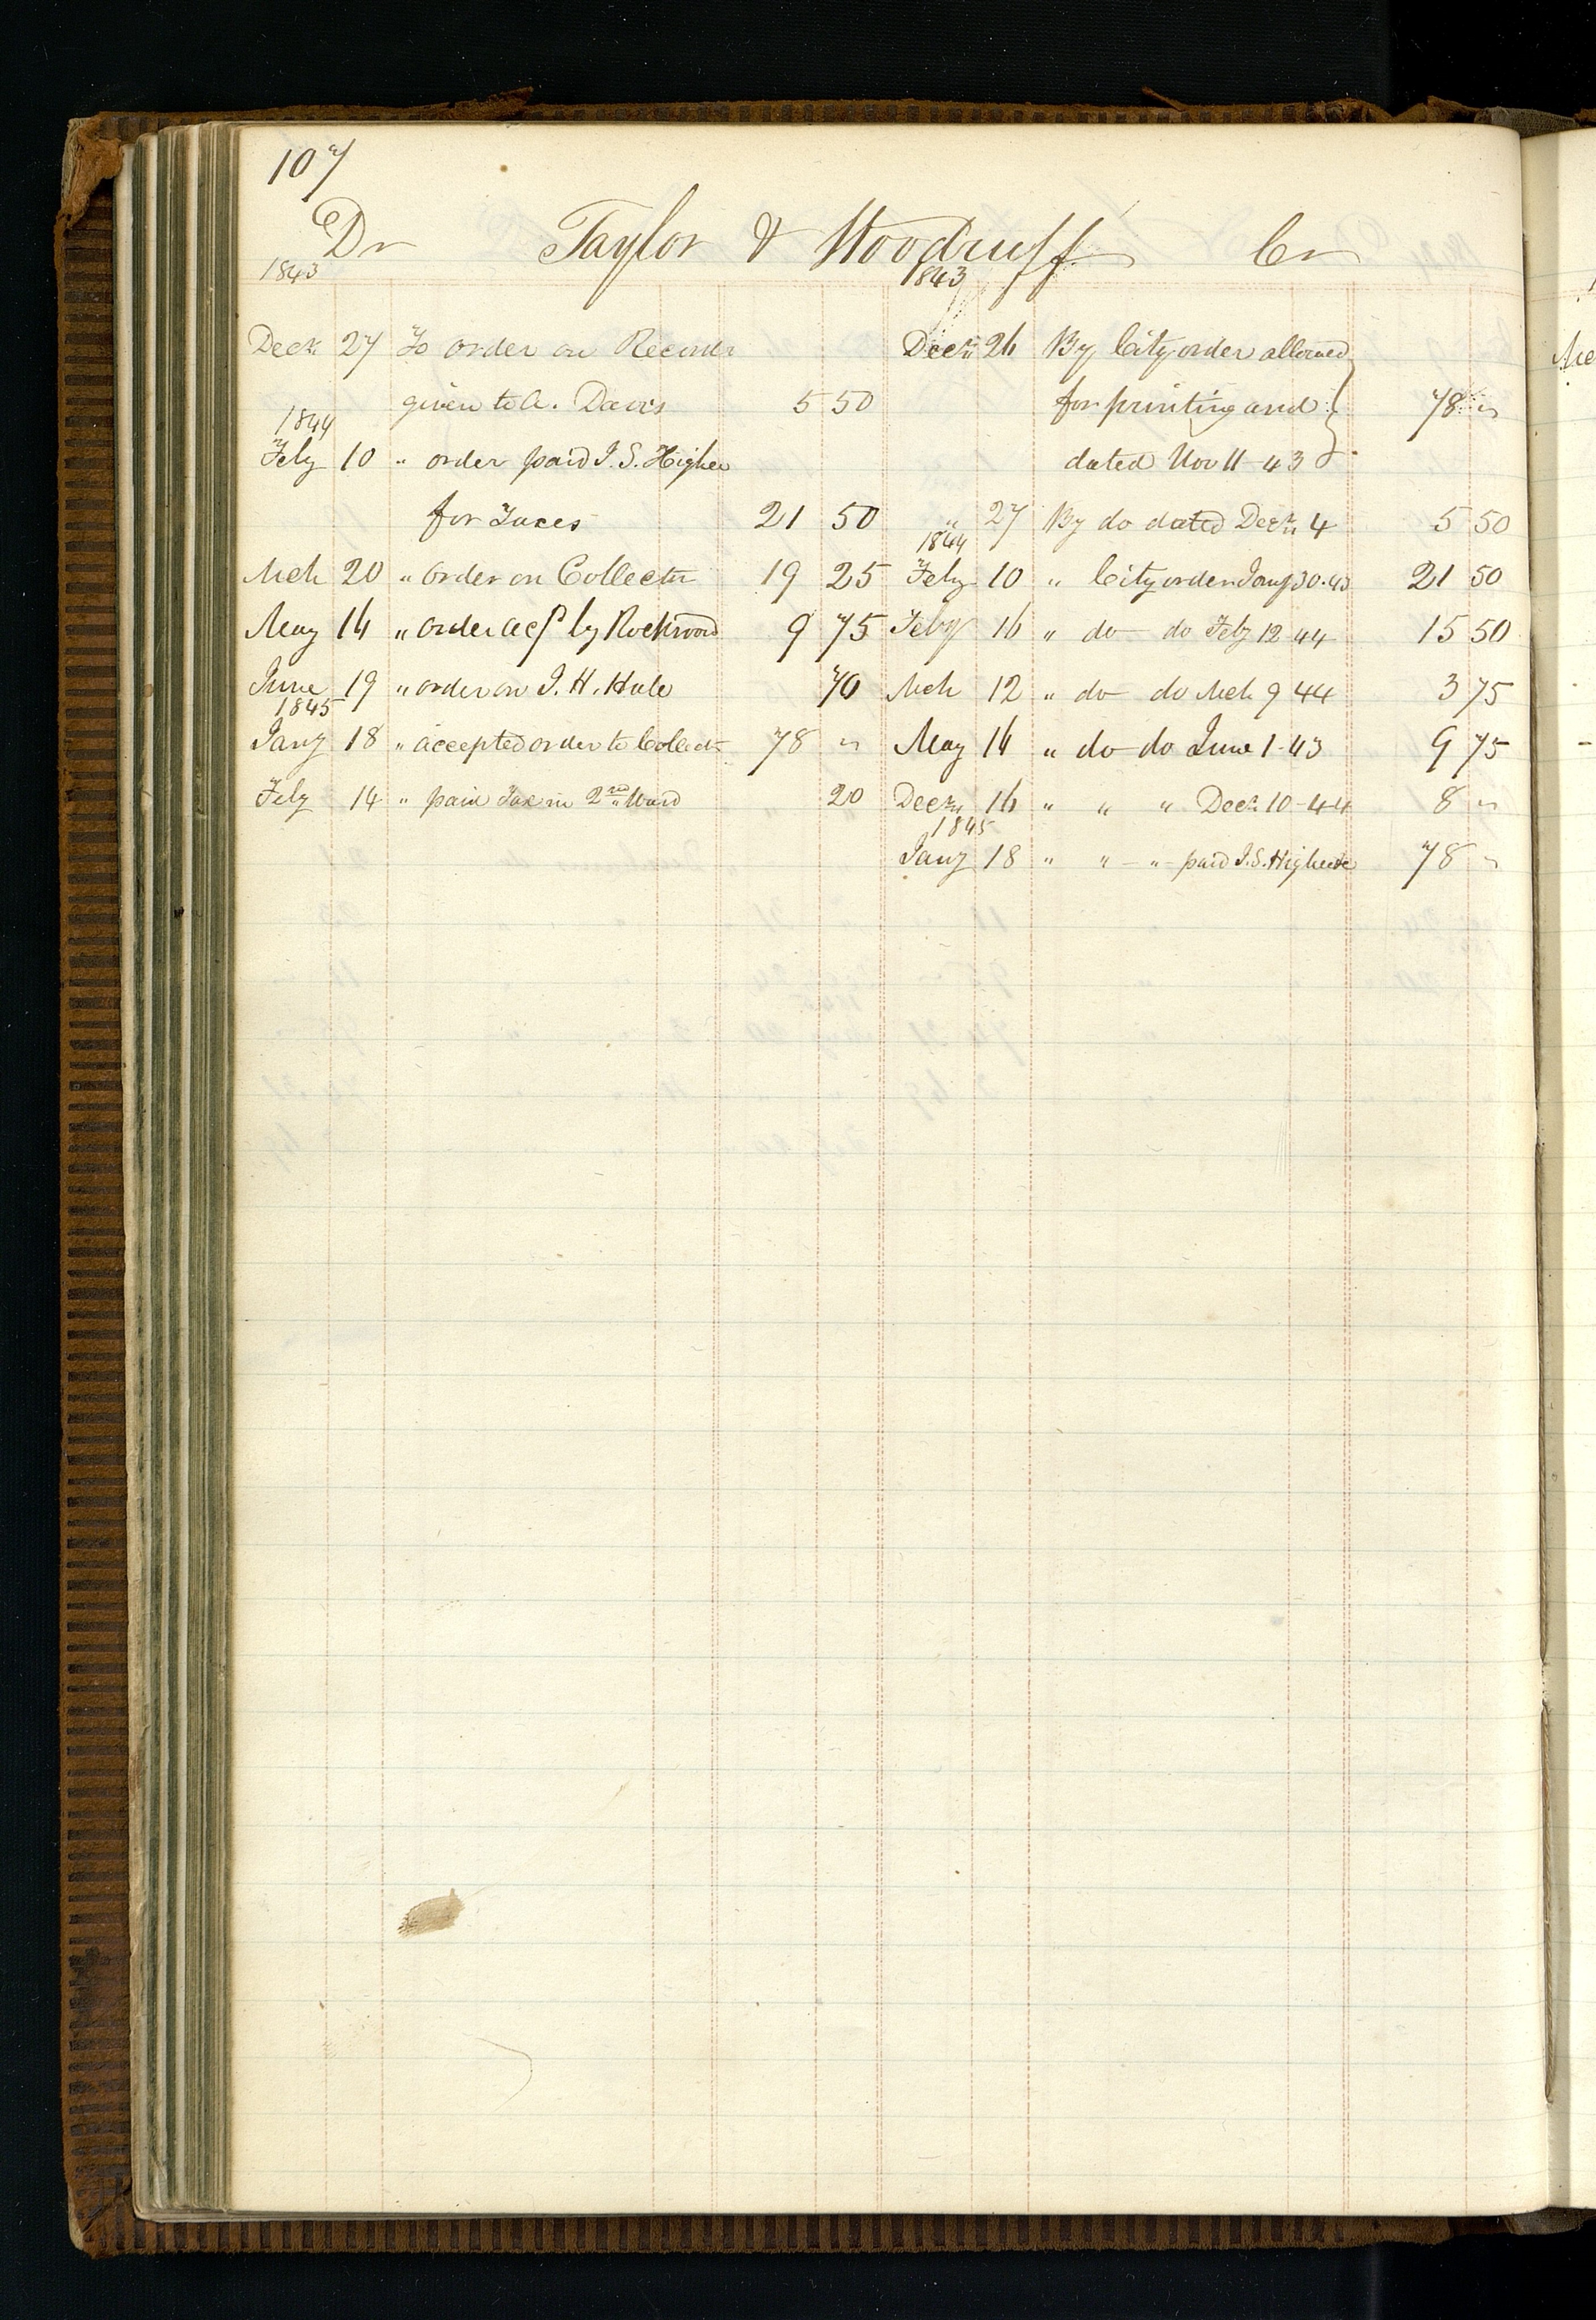 107
Dr Taylor & Woodruff Cr
1843
Decr 27 To order on Recorder
given to A. Davis 5 50
1844
Feby 10 " order paid I. S. Higbee
for Taxes 21 50
Mch 20 " order on Collector 19 25
May 16 " order acpt by Rockwood 9 75
June 19 " order on J. H. Hale 70
1845
Jany 18 " accepted order to Collectr 78 "
Feby 14 " paid Tax in 2nd Ward 20
1843
Decr 26 By City order allowed
for printing and
dated Nov 11 - 43 78 "
" 27 By do dated Decr 4 5 50
1844
Feby 10 " City order Jany 30 - 43 21 50
Feby 16 " do - do Feby 12 - 44 15 50
Mch 12 " do - do Mch 9 44 3 75
May 16 " do - do June 1 - 43 9 75
Decr 16 " " " Decr 10 - 44 8 "
1845
Jany 18 " " - " paid I. S. Higbee 78 "